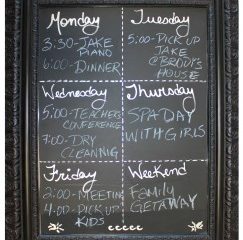 Monday
3:30-JAKE
PIANO
6:00-DINNER
Tuesday
5:00-PICK UP
JAKE
@BRODY'S
HOUSE
Wednesday
5:00-TEACHERS
CONFERENCE
7:00-DRY
CLEANNIG
Thursday
SPA DAY
WITH GIRLS
Friday
2:00-MEETIN
4:00-PICK UP
KIDS
Weekend
Family
GETAWAY